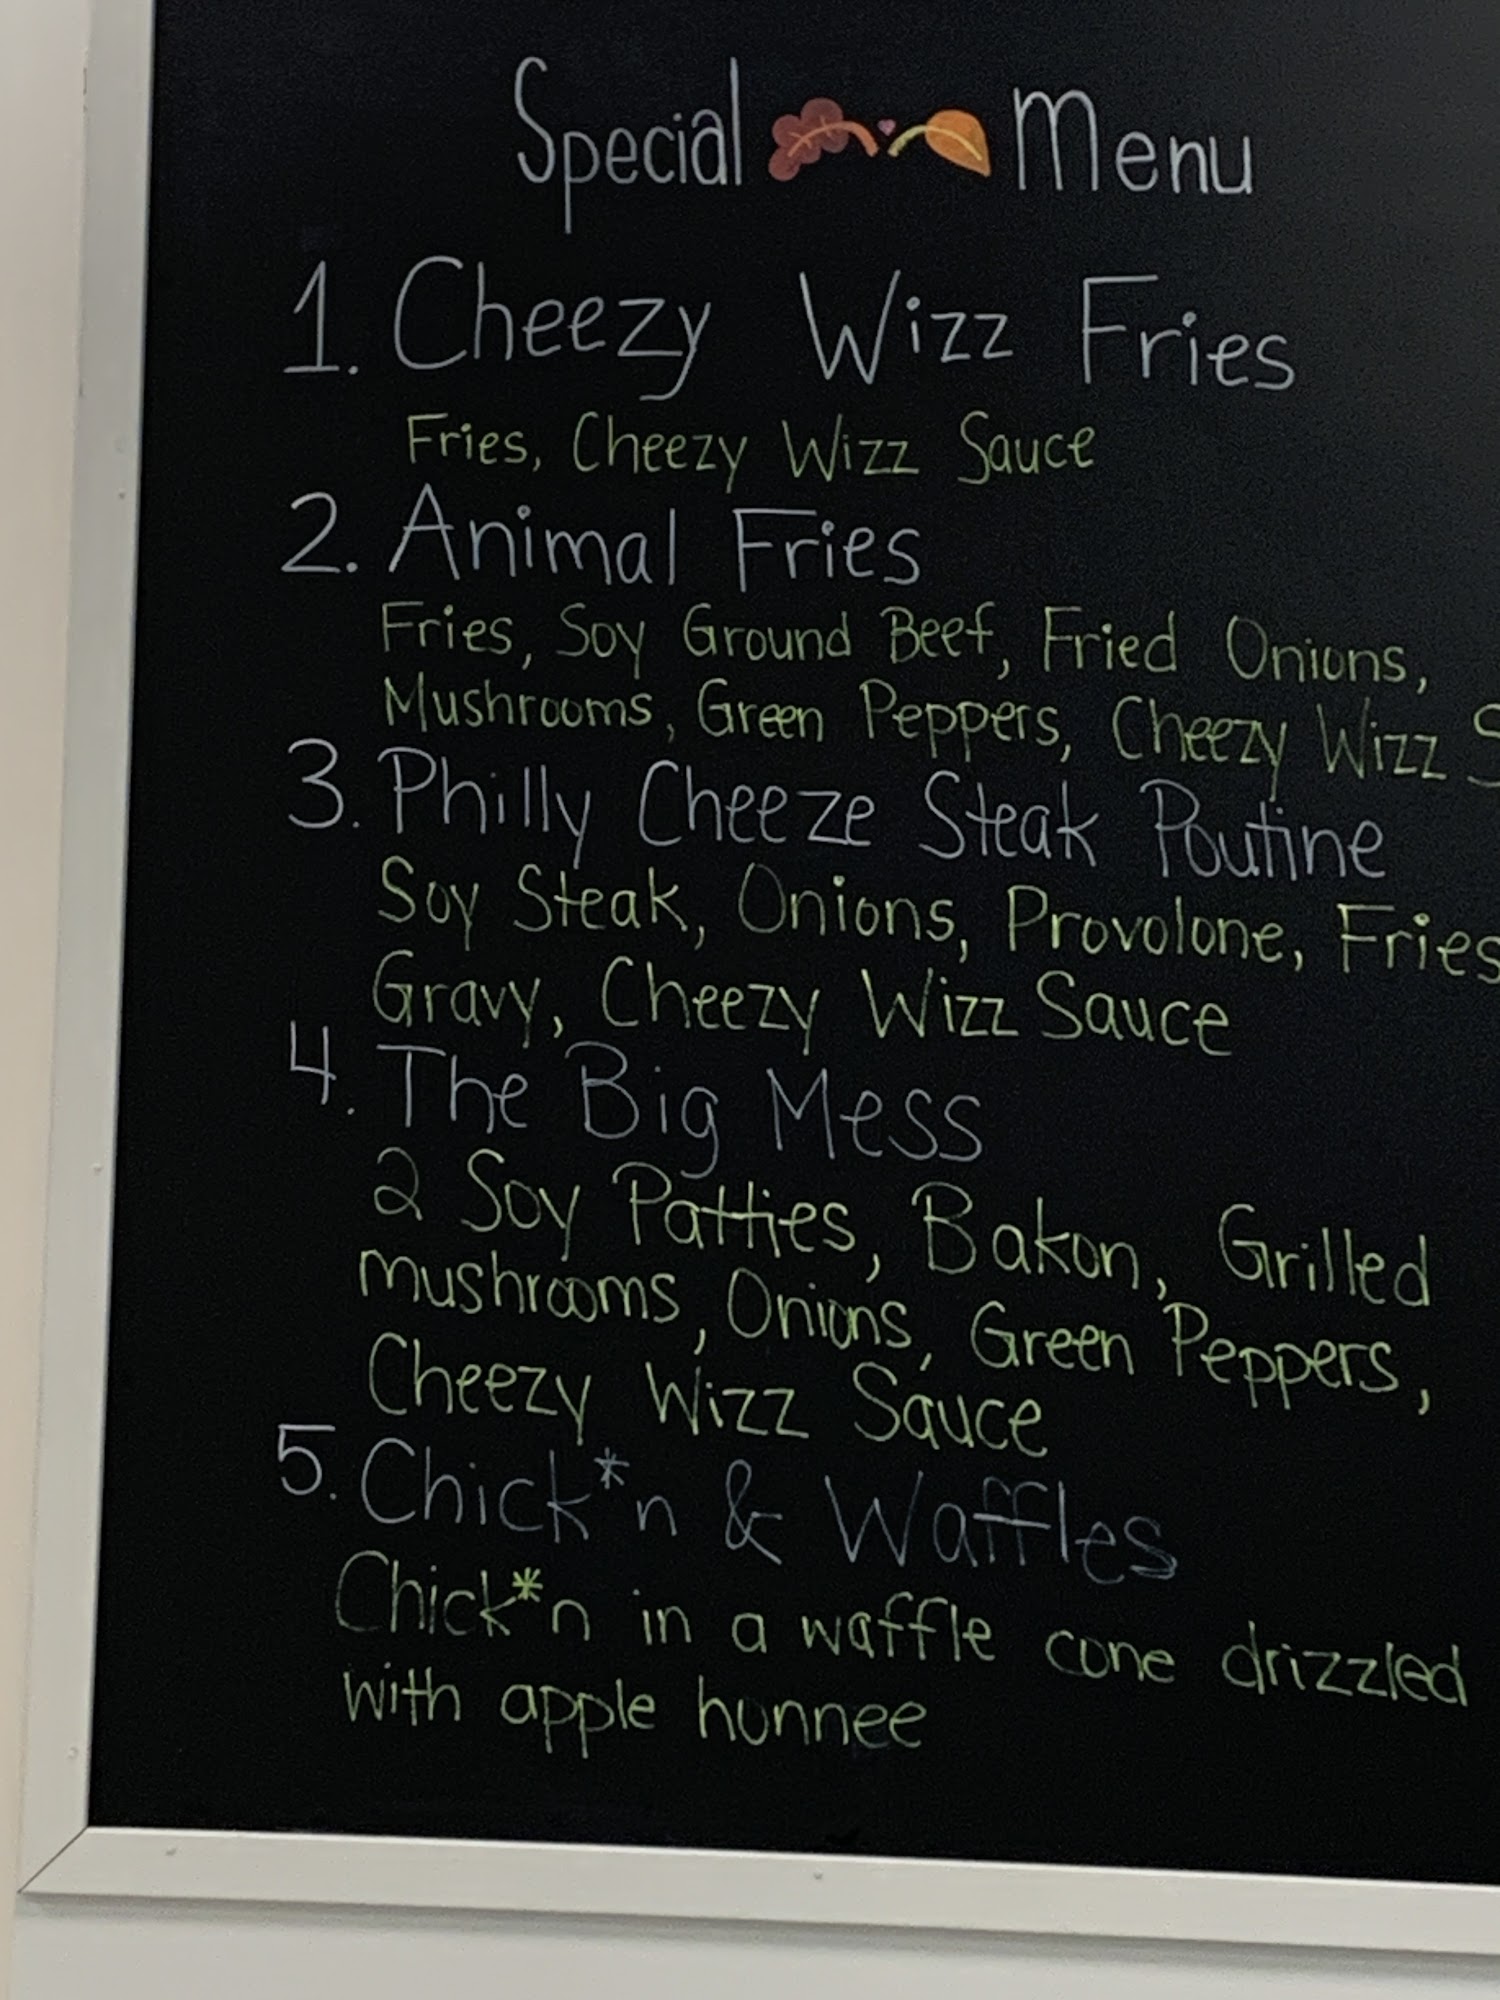 Special Menu
1. Cheezy Wizz Fries
Fries, Cheezy Wizz Sauce
2. Animal Fries
Fries, Soy Ground Beef, Fried Onions,
Mushrooms, Green Peppers, Cheezy Wizz
3. Philly Cheeze Steak Poutine
Soy Steak, Onions, Provolone, Fries
Gravy, Cheezy Wizz Sauce
4. The Big Mess
2 Soy Patties, Bakon, Grilled
mushrooms, Onions, Green Peppers,
Cheezy Wizz Sauce
5. Chick*n & Waffles
Chick*n in a waffle cone drizzled
with apple hunnee